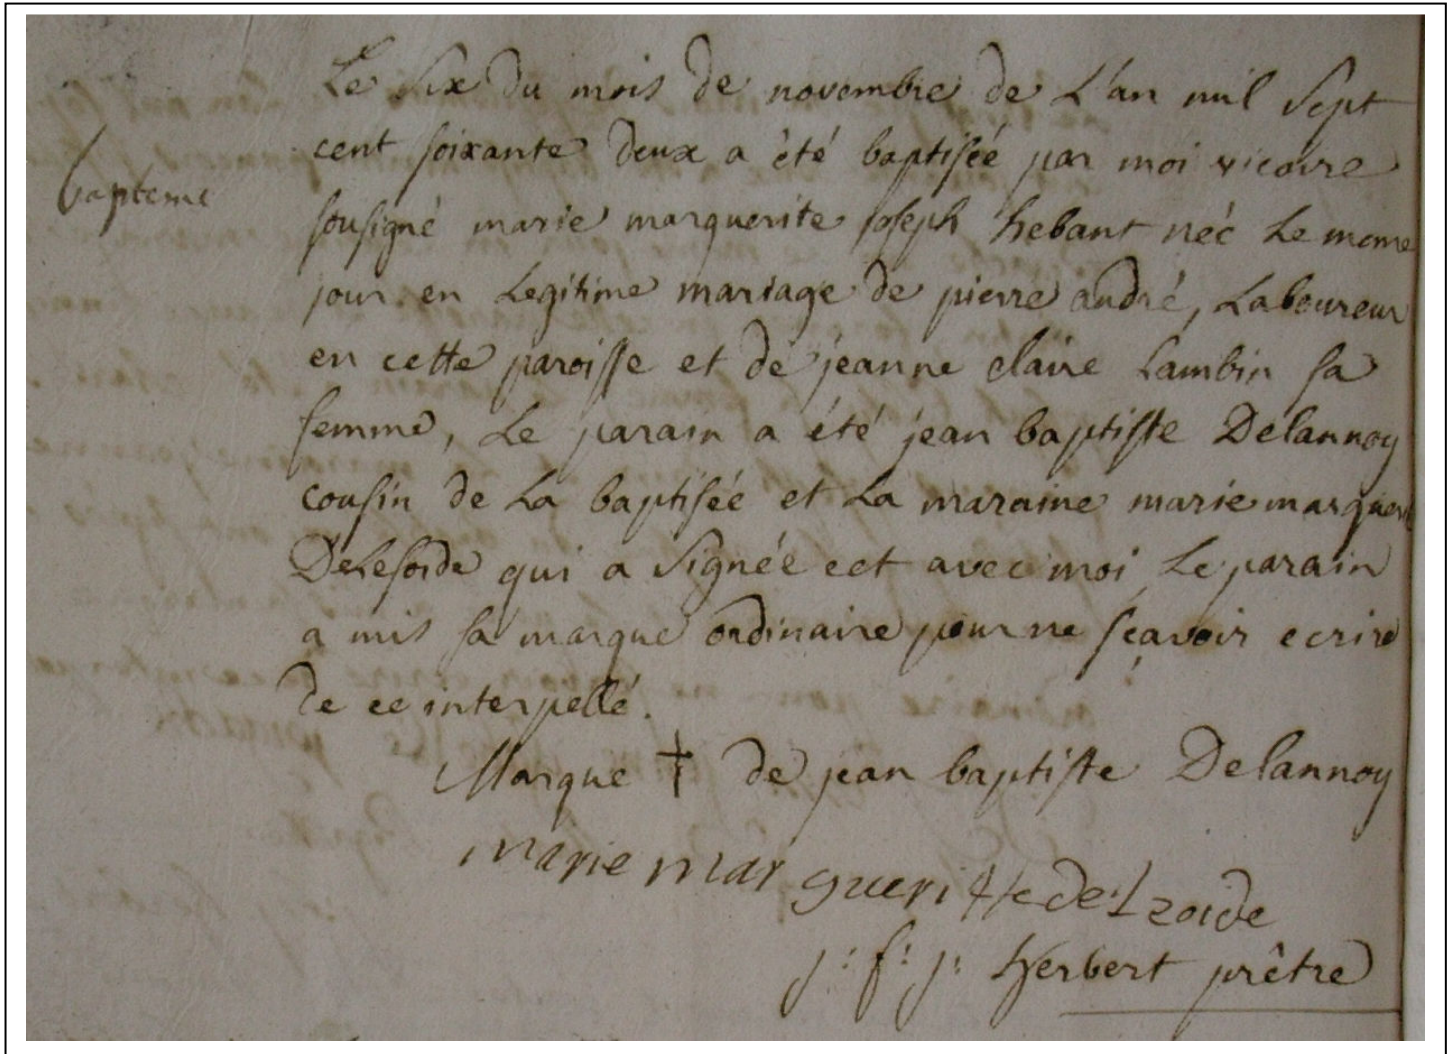 bapteme
Le six du mois de novembre de L'an mil sept
cent soixante deux a été baptisée par moi vicaire
sousigné marie marguerite joseph hebant néé Le meme
jour en Legitime mariage de pierre andré, Laboureur
en cette paroisse et de jeanne claire Lambin sa
femme, Le parain a été jean baptiste Delannoy
cousin de La baptisée et La maraine marie marguer
Delesoide qui a signéé ect avec moi Le parain
a mis sa marque ordinaire pour ne sçavoir ecrire
de ce interpellé.
Marque † de jean baptiste Delannoy
marie mar gueritte
j: f: j: Herbert prêtre